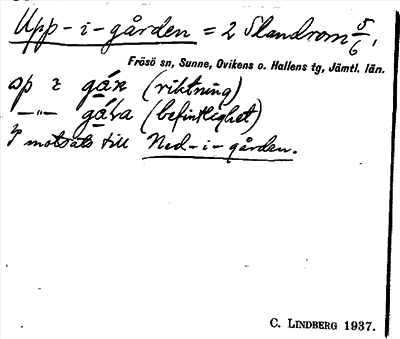 Upp-i-gården = 2 Slandrom 5/6,
Frösö sn, Sunne, Ovikens o. Hallens tg, Jämtl. län.
gán (riktning)
—"— gáła (befintlighet)
motsats till Ned-i-gården.
C. LINDBERG 1937.